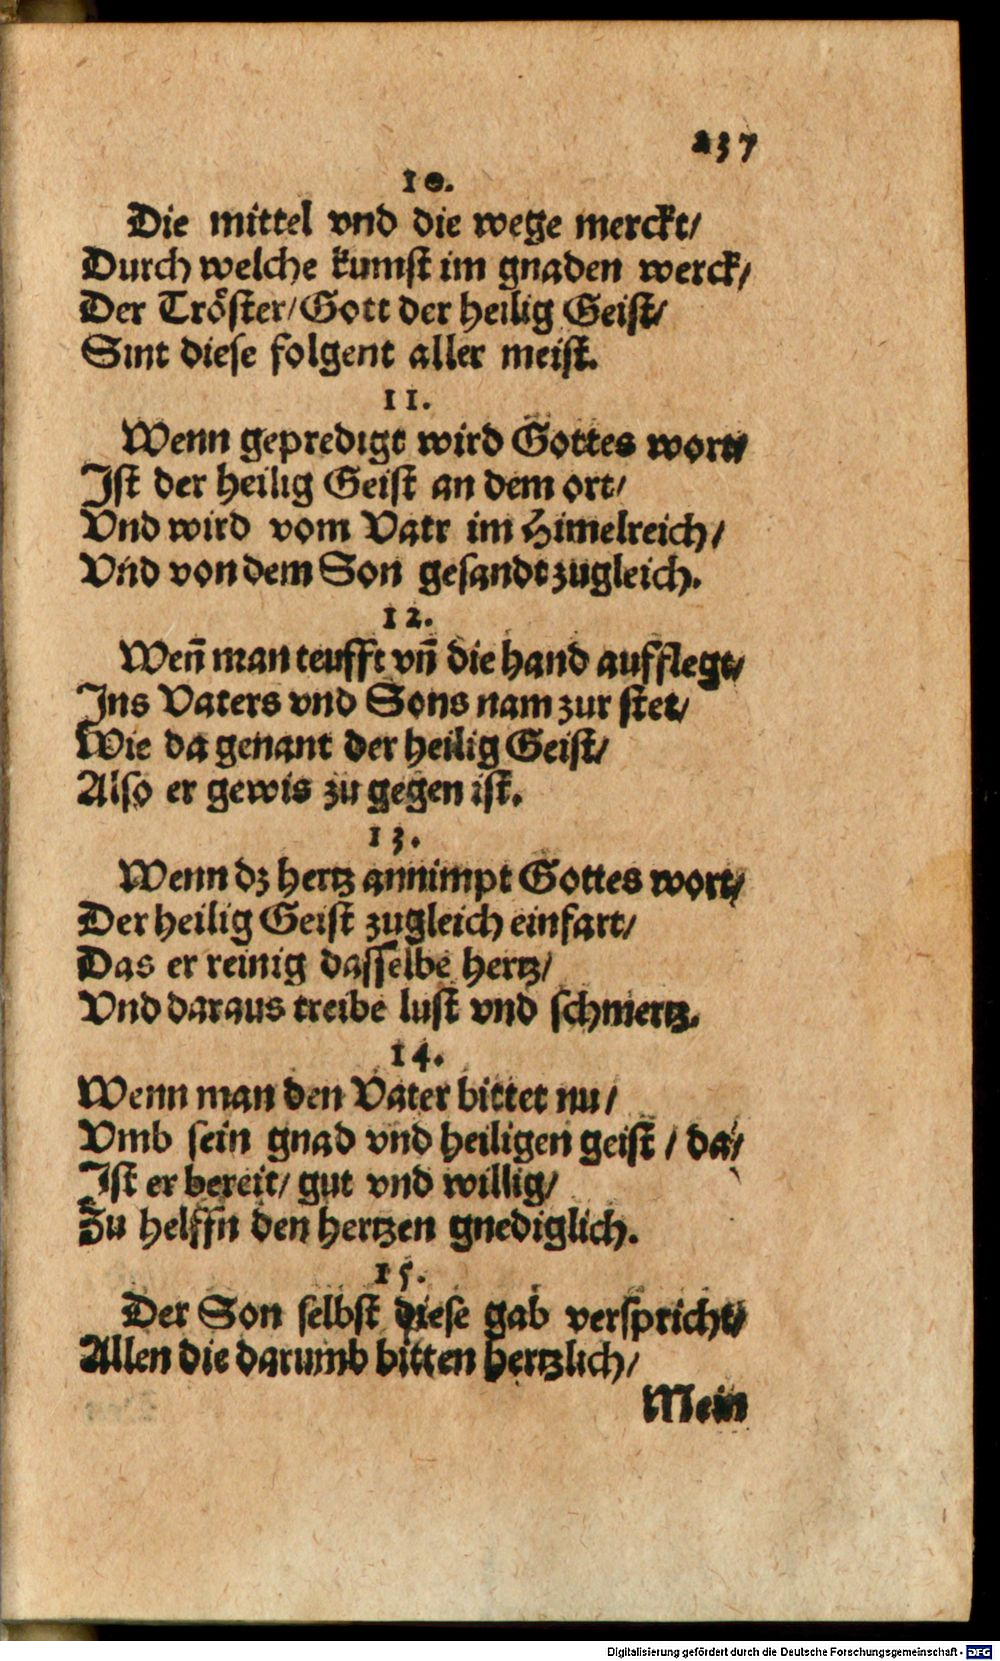 237
10.
Die mittel vnd die wege merckt/
Durch welche kumst im gnaden werck/
Der Tröster/Gott der heilig Geist/
Sint diese folgent aller meist.
11.
Wenn gepredigt wird Gottes wort/
Ist der heilig Geist an dem ort/
Vnd wird vom Vatr im Himelreich/
Vnd von dem Son gesandt zugleich.
12.
Weñ man teufft vñ die hand aufflegt/
Ins Vaters vnd Sons nam zur stet/
Wie da genant der heilig Geist/
Also er gewis zu gegen ist.
13.
Wenn dz hertz annimpt Gottes wort/
Der heilig Geist zugleich einfart/
Das er reinig dasselbe hertz/
Vnd daraus treibe lust vnd schmertz.
14.
Wenn man den Vater bittet nu/
Vmb sein gnad vnd heiligen geist/ da/
Ist er bereit/ gut vnd willig/
Zu helffn den hertzen gnediglich.
15.
Der Son selbst diese gab verspricht/
Allen die darumb bitten hertzlich/
Mein
Digitalisierung gefördert durch die Deutsche Forschungsgemeinschaft - DFG